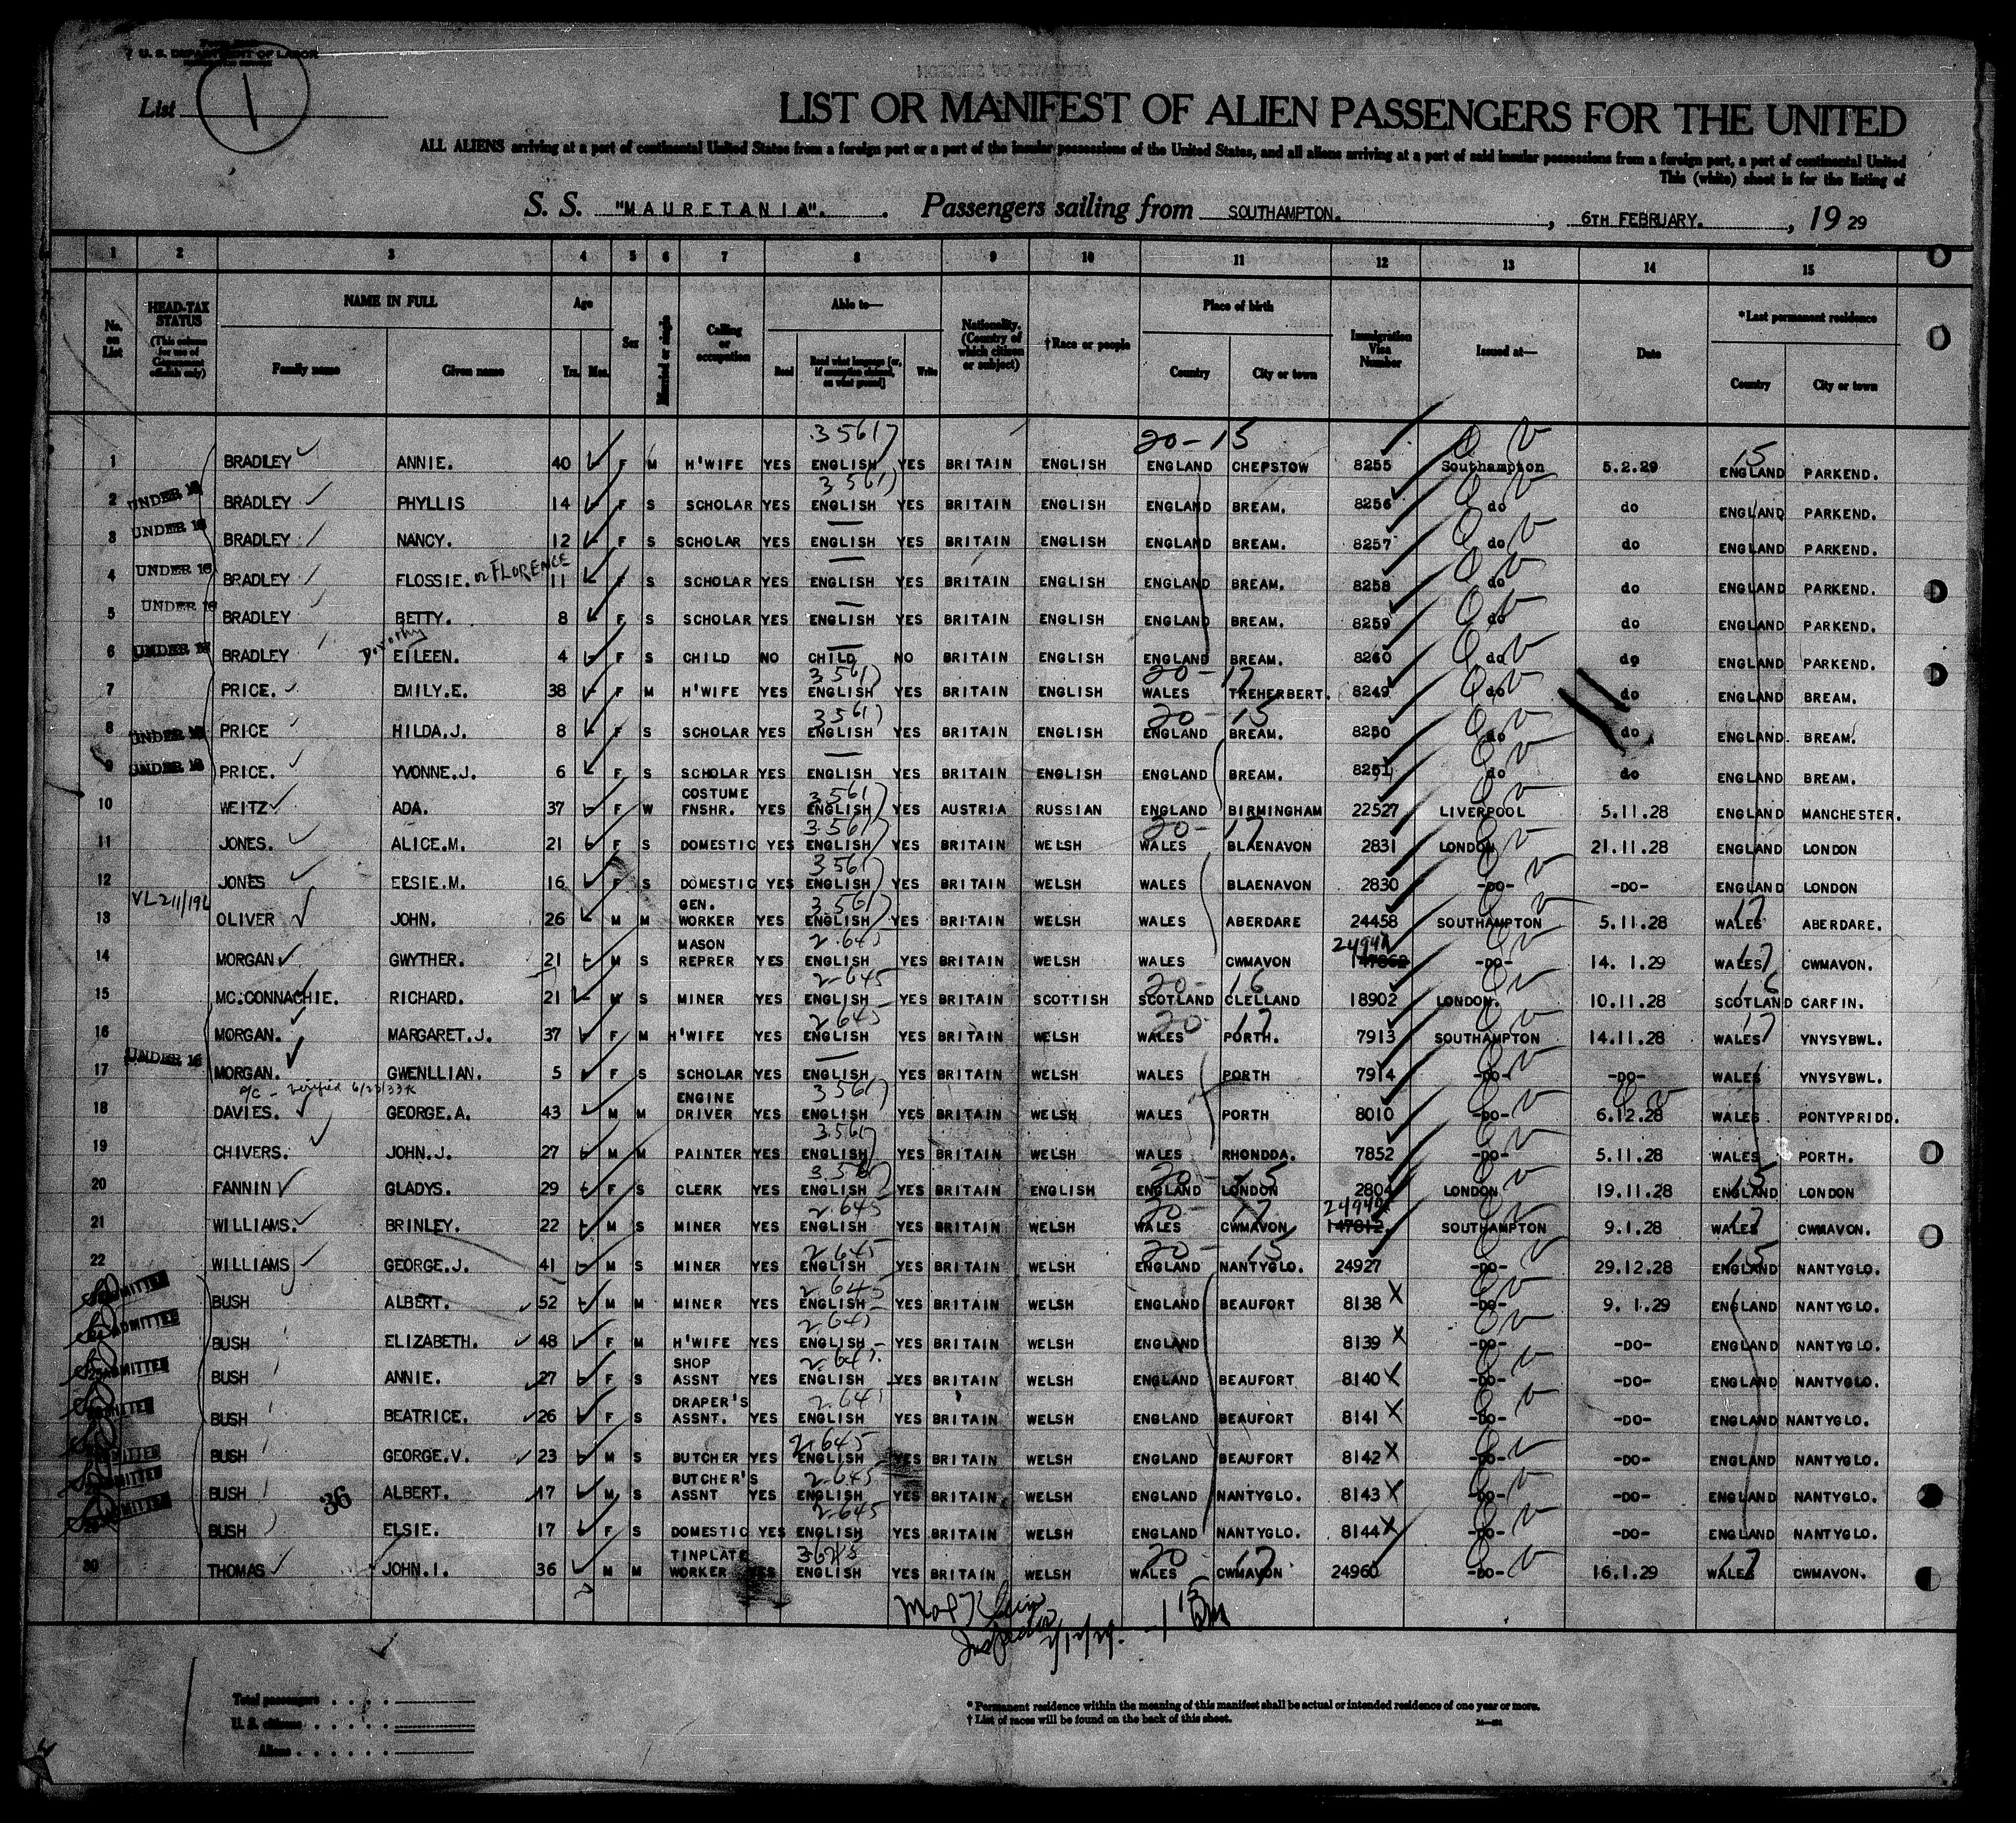 U. S. DEPARTMENT OF LABOR
List 1
LIST OR MANIFEST OF ALIEN PASSENGERS FOR THE UNITED
ALL ALIENS arriving at a port of continental United States from a foreign port or a port of the insular possessions of the United States, and all aliens arriving at a port of said insular possessions from a foreign port, a port of continental United
This (white) sheet is for the listing of
S. S. "MAURETANIA". Passengers sailing from SOUTHAMPTON. , 6TH FEBRUARY. , 19 29
1 2 3 4 5 6 7 8 9 10 11 12 13 14 15
No. on List HEAD-TAX STATUS (This column for use of Government officials only) NAME IN FULL Family name Given name Age Yrs. Mos. Sex Married or single Calling or occupation Able to— Read Read what language [or, if exemption claimed, on what ground] Write Nationality. (Country of which citizen or subject) †Race or people Place of birth Country City or town Immigration Visa Number Issued at— Date *Last permanent residence Country City or town
35617 20-15 15
1 BRADLEY ANNIE. 40 F M H'WIFE YES ENGLISH YES BRITAIN ENGLISH ENGLAND CHEPSTOW 8255 Southampton 5.2.29 ENGLAND PARKEND.
35617
2 UNDER 16 BRADLEY PHYLLIS 14 F S SCHOLAR YES ENGLISH YES BRITAIN ENGLISH ENGLAND BREAM. 8256 do do ENGLAND PARKEND.
3 UNDER 16 BRADLEY NANCY. 12 F S SCHOLAR YES ENGLISH YES BRITAIN ENGLISH ENGLAND BREAM. 8257 do do ENGLAND PARKEND.
4 UNDER 16 BRADLEY FLOSSIE. or FLORENCE 11 F S SCHOLAR YES ENGLISH YES BRITAIN ENGLISH ENGLAND BREAM. 8258 do do ENGLAND PARKEND.
5 UNDER 16 BRADLEY BETTY. 8 F S SCHOLAR YES ENGLISH YES BRITAIN ENGLISH ENGLAND BREAM. 8259 do do ENGLAND PARKEND.
6 UNDER 16 BRADLEY Dorothy EILEEN. 4 F S CHILD NO CHILD NO BRITAIN ENGLISH ENGLAND BREAM. 8260 do do ENGLAND PARKEND.
35617 20-17
7 PRICE. EMILY.E. 38 F M H'WIFE YES ENGLISH YES BRITAIN ENGLISH WALES TREHERBERT. 8249 do do ENGLAND BREAM.
35617 20-15
8 UNDER 16 PRICE HILDA.J. 8 F S SCHOLAR YES ENGLISH YES BRITAIN ENGLISH ENGLAND BREAM. 8250 do do ENGLAND. BREAM.
9 UNDER 16 PRICE. YVONNE.J. 6 F S SCHOLAR YES ENGLISH YES BRITAIN ENGLISH ENGLAND BREAM. 8251 do do ENGLAND BREAM.
35617
10 WEITZ ADA. 37 F W COSTUME FNSHR. YES ENGLISH YES AUSTRIA RUSSIAN ENGLAND BIRMINGHAM 22527 LIVERPOOL 5.11.28 ENGLAND MANCHESTER.
35617 20-17
11 JONES. ALICE.M. 21 F S DOMESTIC YES ENGLISH YES BRITAIN WELSH WALES BLAENAVON 2831 LONDON 21.11.28 ENGLAND LONDON
35617
12 JONES ELSIE.M. 16 F S DOMESTIC YES ENGLISH YES BRITAIN WELSH WALES BLAENAVON 2830 -DO- -DO- ENGLAND LONDON
35617 17
13 OLIVER JOHN. 26 M M GEN. WORKER YES ENGLISH YES BRITAIN WELSH WALES ABERDARE 24458 SOUTHAMPTON 5.11.28 WALES ABERDARE.
2.645
14 MORGAN GWYTHER. 21 M S MASON REPRER YES ENGLISH YES BRITAIN WELSH WALES CWMAVON -DO- 14. 1.29 WALES CWMAVON.
2-645 20-16 16
15 MC.CONNACHIE. RICHARD. 21 M S MINER YES ENGLISH YES BRITAIN SCOTTISH SCOTLAND CLELLAND 18902 LONDON. 10.11.28 SCOTLAND CARFIN.
2645 20 17 17
16 MORGAN. MARGARET.J. 37 F M H'WIFE YES ENGLISH YES BRITAIN WELSH WALES PORTH. 7913 SOUTHAMPTON 14.11.28 WALES YNYSYBWL.
17 UNDER 16 MORGAN. GWENLLIAN. 5 F S SCHOLAR YES ENGLISH YES BRITAIN WELSH WALES PORTH 7914 -DO- -DO- WALES YNYSYBWL.
35617
18 DAVIES. GEORGE.A. 43 M M ENGINE DRIVER YES ENGLISH YES BRITAIN WELSH WALES PORTH 8010 -DO- 6.12.28 WALES PONTYPRIDD.
35617
19 CHIVERS. JOHN.J. 27 M M PAINTER YES ENGLISH YES BRITAIN WELSH WALES RHONDDA. 7852 -DO- 5.11.28 WALES PORTH.
35617 20-15 15
20 FANNIN GLADYS. 29 F S CLERK YES ENGLISH YES BRITAIN ENGLISH ENGLAND LONDON 2804 LONDON 19.11.28 ENGLAND LONDON
2645 20-17 17
21 WILLIAMS. BRINLEY. 22 M S MINER YES ENGLISH YES BRITAIN WELSH WALES CWMAVON 147812 SOUTHAMPTON 9.1.28 WALES CWMAVON.
2645 20-15 15
22 WILLIAMS GEORGE.J. 41 M S MINER YES ENGLISH YES BRITAIN WELSH ENGLAND NANTYGLO. 24927 -DO- 29.12.28 ENGLAND NANTYGLO.
2645
ADMITTED BUSH ALBERT. 52 M M MINER YES ENGLISH YES BRITAIN WELSH ENGLAND BEAUFORT 8138 X -DO- 9. 1.29 ENGLAND NANTYGLO.
2645
ADMITTED BUSH ELIZABETH. 48 F M H'WIFE YES ENGLISH YES BRITAIN WELSH ENGLAND 8139 X -DO- -DO- ENGLAND NANTYGLO.
2645
ADMITTED BUSH ANNIE. 27 F S SHOP ASSNT YES ENGLISH YES BRITAIN WELSH ENGLAND BEAUFORT 8140 X -DO- -DO- ENGLAND NANTYGLO.
2645
ADMITTED BUSH BEATRICE. 26 F S DRAPER'S ASSNT. YES ENGLISH YES BRITAIN WELSH ENGLAND BEAUFORT 8141 X -DO- -DO- ENGLAND NANTYGLO.
2645
ADMITTED BUSH GEORGE.V. 23 M S BUTCHER YES ENGLISH YES BRITAIN WELSH ENGLAND BEAUFORT 8142 X -DO- -DO- ENGLAND NANTYGLO.
2645
ADMITTED BUSH 36 ALBERT. 17 M S BUTCHER'S ASSNT YES ENGLISH YES BRITAIN WELSH ENGLAND NANTYGLO. 8143 X -DO- -DO- ENGLAND NANTYGLO.
2645
ADMITTED BUSH ELSIE. 17 F S DOMESTIC YES ENGLISH YES BRITAIN WELSH ENGLAND NANTYGLO. 8144 X -DO- -DO- ENGLAND NANTYGLO.
20 17 17
30 THOMAS JOHN.I. 36 M M TINPLATE WORKER YES ENGLISH YES BRITAIN WELSH WALES CWMAVON 24960 -DO- 16.1.29 WALES CWMAVON.
Inspector
Total passengers
U. S. citizens
Aliens
* Permanent residence within the meaning of this manifest shall be actual or intended residence of one year or more.
† List of races will be found on the back of this sheet.